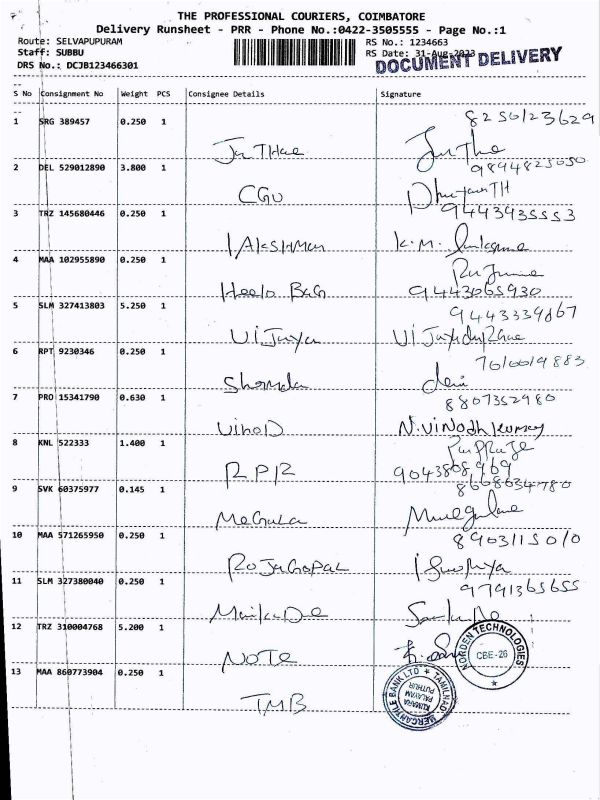 THE PROFESSIONAL COURIERS, COIMBATORE
Delivery Runsheet - PRR - Phone No.:0422-3505555 - Page No.:1
Route: SELVAPUPURAM RS No.: 1234663
Staff: SUBBU RS Date: 31-Aug-2023
DRS No.: DCJB123466301 DOCUMENT DELIVERY
S No Consignment No Weight PCS Consignee Details Signature
1 SRG 389457 0.250 1 8256123629
2 DEL 529012890 3.800 1 9894825050
CGU
3 TRZ 145680446 0.250 1 9443935553
LAKSHMAN K.M.
4 MAA 102955890 0.250 1
Heelo BaG 9443065930
5 SLM 327413803 5.250 1 9443339867
Vijaya
6 RPT 9230346 0.250 1 7616619883
7 PRO 15341790 0.630 1 8807352980
VinoD N.Vinodhkumar
8 KNL 522333 1.400 1
RPR 9043808969
9 SVK 60375977 0.145 1 8668634780
MeGala
10 MAA 571265950 0.250 1 8903115010
RoJaGoPaL
11 SLM 327380040 0.250 1 9791365655
12 TRZ 310004768 5.200 1
NOTe NORDEN TECHNOLOGIES CBE-26
13 MAA 860773904 0.250 1
TMB TAMILNAD MERCANTILE BANK LTD KUMARA PALAYAM PUTHUR